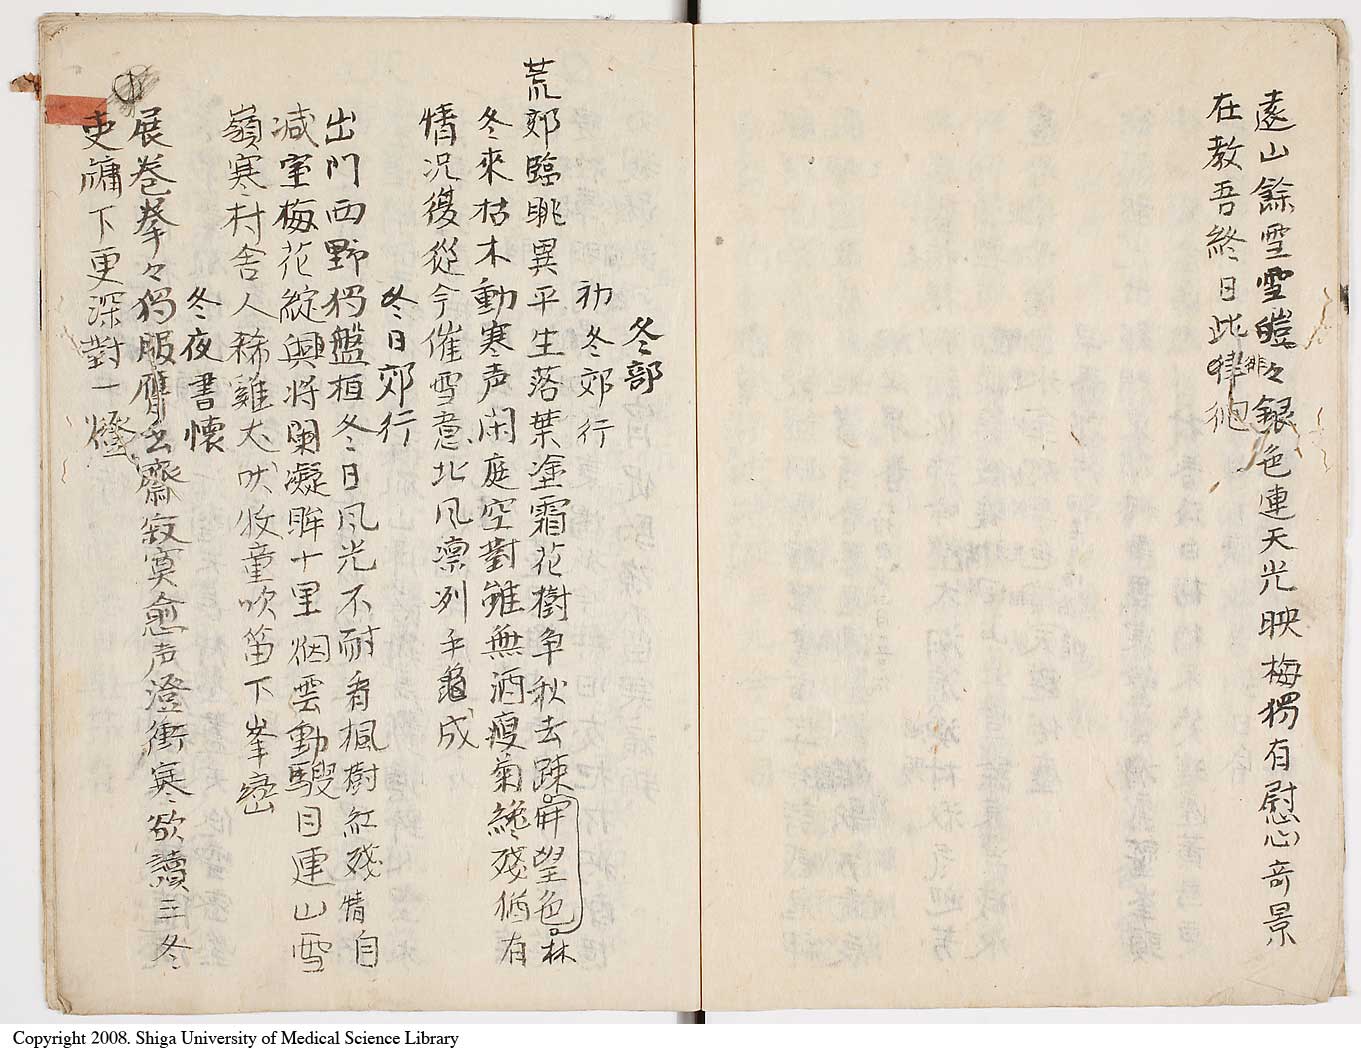 遠山餘雪雪皚々銀色連天光映梅獨有慰心奇景
在教吾終日此徘徊
冬部
初冬郊行
荒郊臨眺異平生落葉塗霜花樹争秋去疎林屏望色
冬來枯木動寒声閑庭空對雖無酒瘦菊纔殘猶有
情況復從今催雪意北風凛列手龜成
冬日郊行
出門西野独盤桓冬日风光不耐看楓樹紅殘情自
减窒梅花綻興将闌凝眸十里烟雲動驟目連山雪
嶺寒村舎人稀雞犬吠牧童吹笛下峯巒
冬夜書懷
展巻拳々独服膺玄齋寂寞愈声澄衝寒欲讀三冬
史牗下更深對一燈
Copyright 2008. Shiga University of Medical Science Library